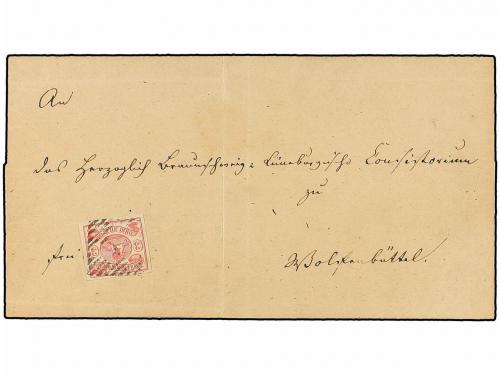 An
das Herzoglich Braunschweig-Lüneburgische Consistorium
zu
frei
Wolfenbüttel.